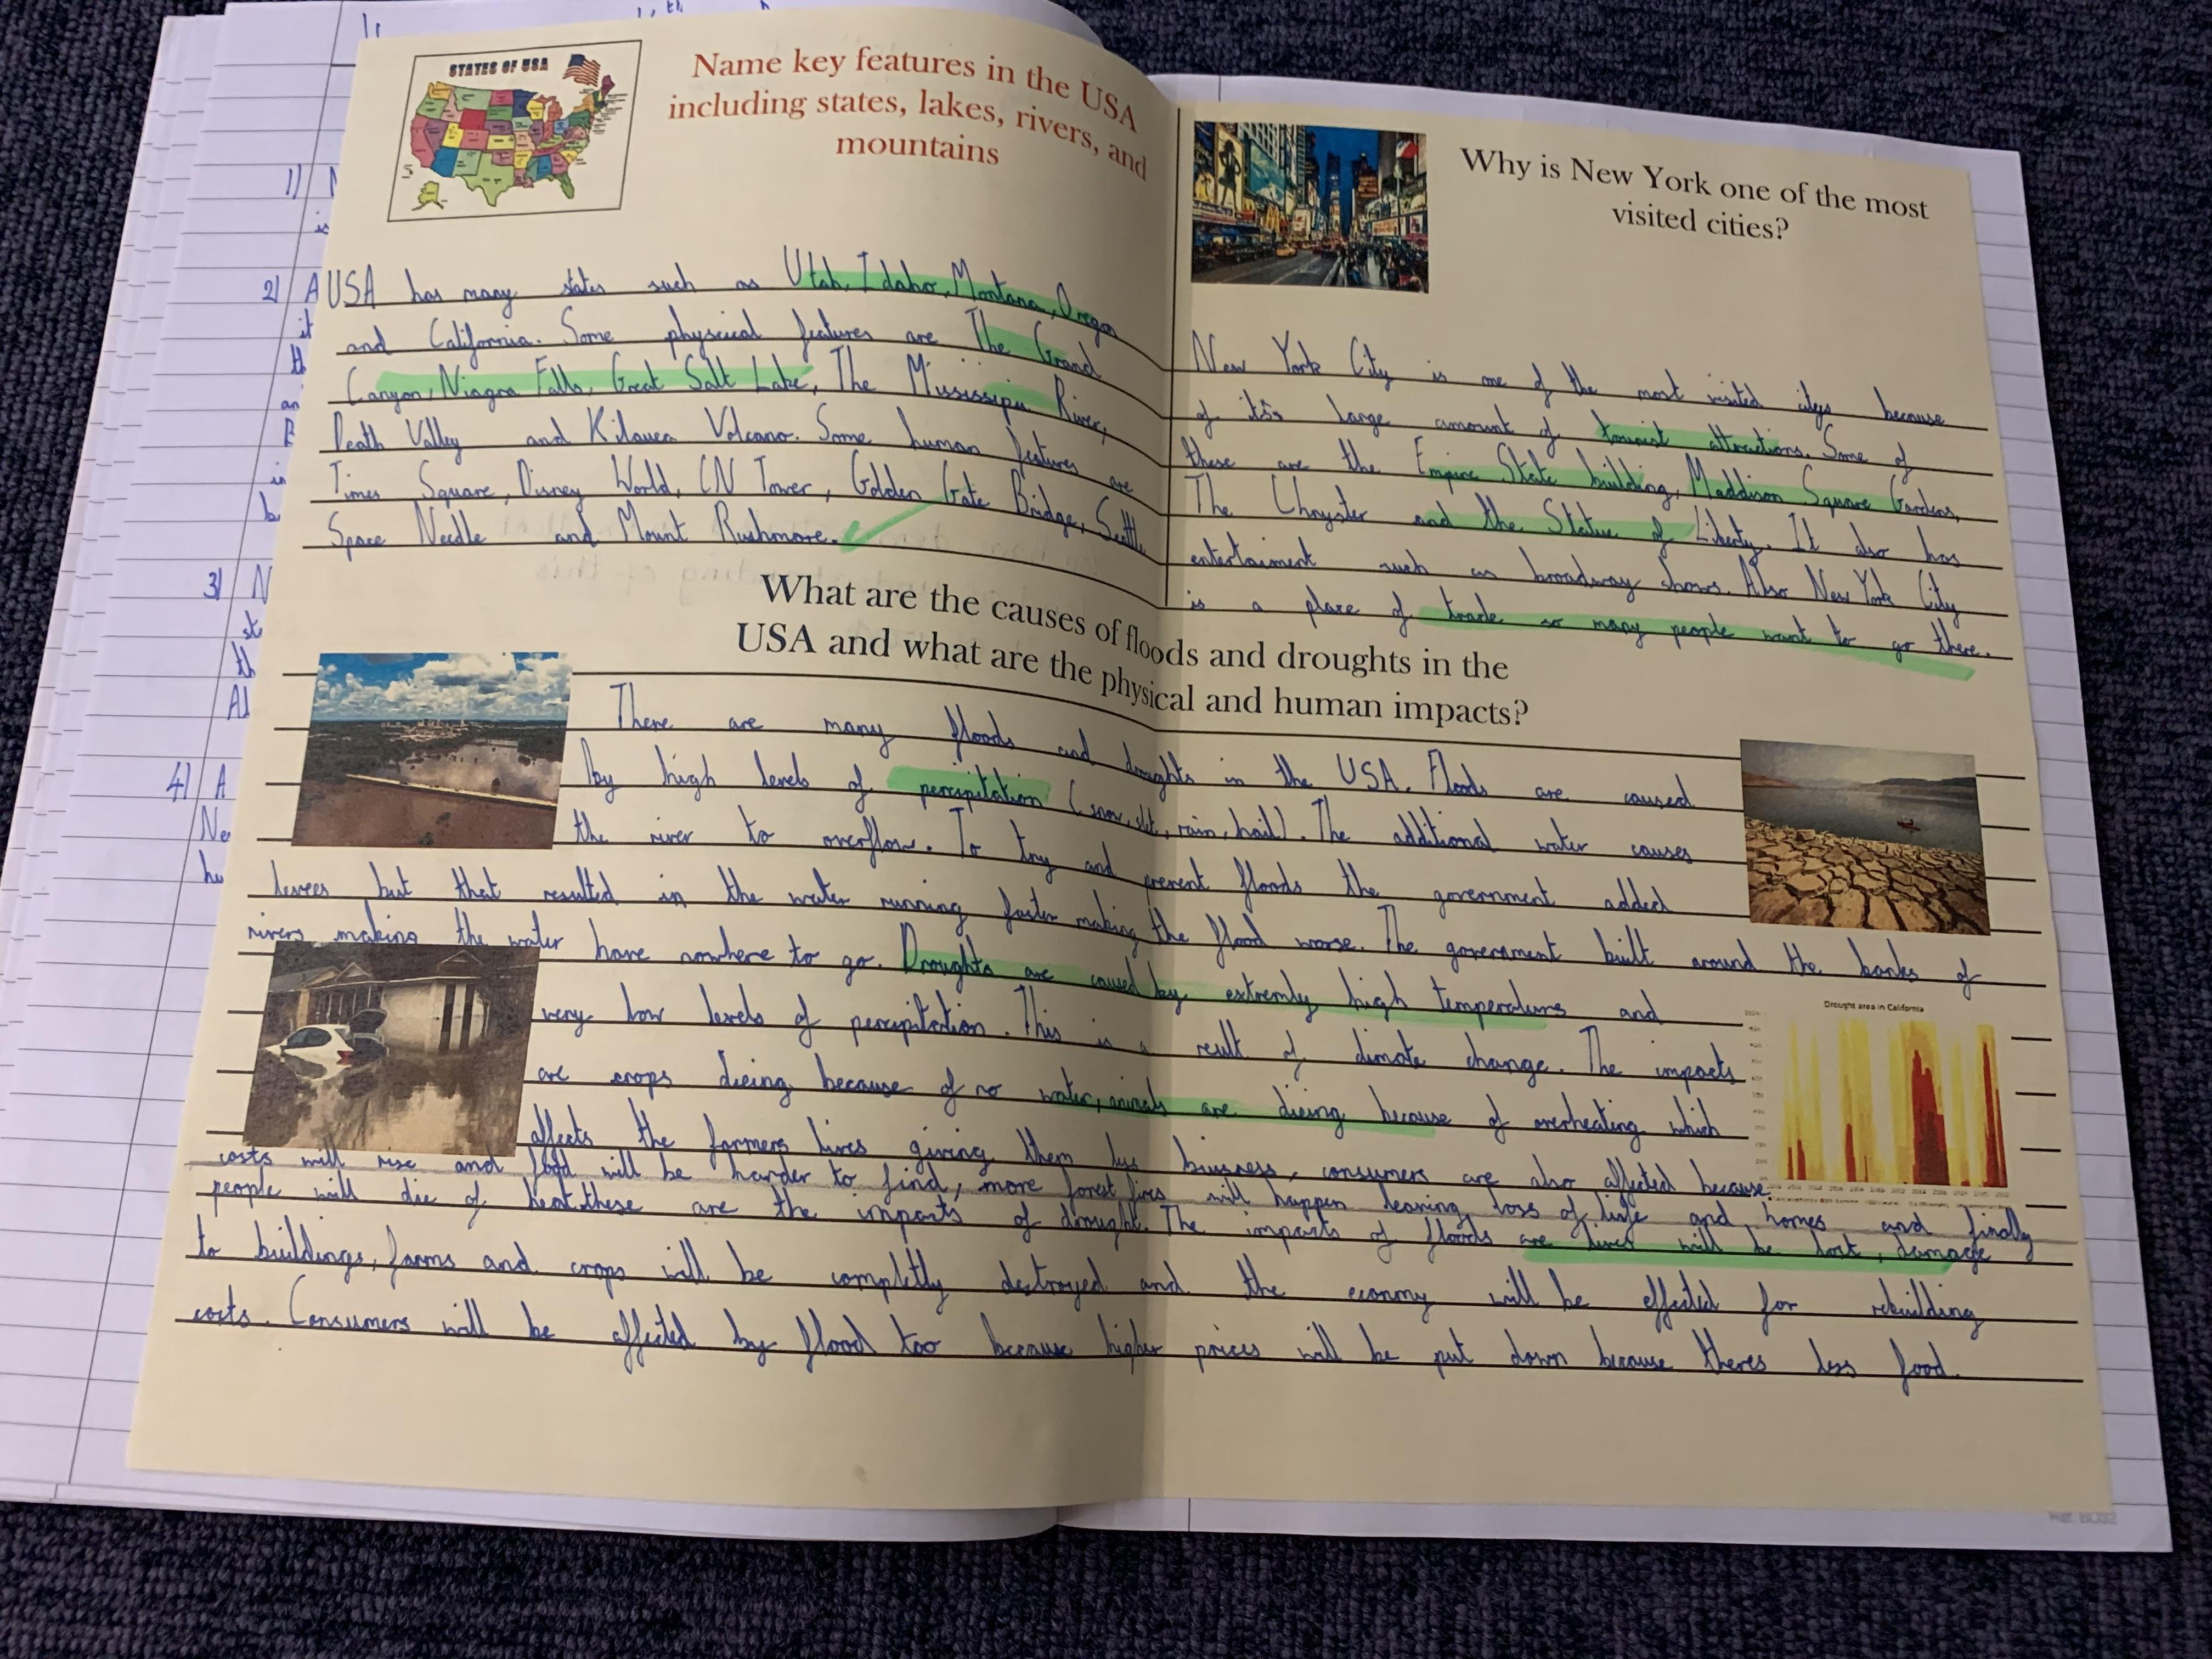 STATES OF USA
Name key features in the USA
including states, lakes, rivers, and
mountains
USA has many states such as Utah, Idaho, Montana, Oregon
and California. Some physical features are The Grand
Canyon, Niagra Falls, Great Salt Lake, The Mississipi River,
Death Valley and Kilauea Volcano. Some human features are
Times Square, Disney World, CN Tower, Golden Gate Bridge, Seattle
Space Needle and Mount Rushmore.
Why is New York one of the most
visited cities?
New York City is one of the most visited citys because
of it's large amount of tourist attractions. Some of
these are the Empire State building, Maddison Square Gardens,
The Chryster and the Statue of Liberty. It also has
entertaiment such as broadway shows. Also New York City
is a place of trade so many people want to go there.
What are the causes of floods and droughts in the
USA and what are the physical and human impacts?
There are many floods and droughts in the USA. Floods are caused
by high levels of percipitation (snow, slit, rain, hail). The additional water causes
the river to overflow. To try and prevent floods the government added
levees but that resulted in the water running faster making the flood worse. The government built around the banks of
rivers making the water have nowhere to go. Droughts are caused by extremly high temperature and
very low levels of percipitation. This is a result of climate change. The impacts
are crops dieing because of no water, animals are dieing because of overheating which
affects the farmers lives giving them less buisness, consumers are also affected because
costs will rise and food will be harder to find, more forest fires will happen leaving loss of life and homes and finally
people will die of heat.these are the impacts of drought. The impacts of floods are lives will be lost, damage
to buildings, farms and crops will be completly destroyed and the econmy will be effected for rebuilding
costs. Consumers will be affected by flood too because higher prices will be put down because theres less food.
Drought area in California
1)
2) A
it
an
in
3) N
th
Al
4) A
Ne